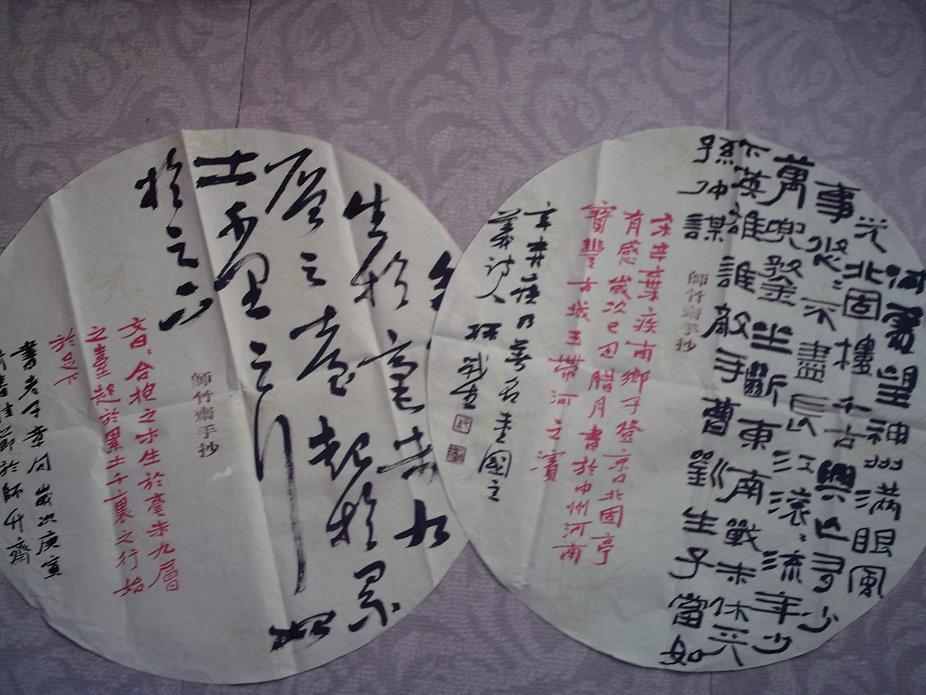 何處望神州滿眼風
光北固樓千古興亡多少
事悠〻不盡長江滾〻流年少
萬兜鍪坐斷東南戰未休天
下英雄誰敵手曹劉生子當如
孫仲謀
師竹齋手抄
宋辛棄疾南鄉子登京口北固亭
有感歲次己丑腊月書於中州河南
寶豐古城玉帶河之濱
辛弃疾乃著名愛國主
義詩人
生於毫末九
層之臺起於累
土千里之行始
於足下
師竹齋手抄
文曰:合抱之木生於毫末九層
之臺起於累土千裏之行始
於足下
書老子章句歲次庚寅
節於師竹齋